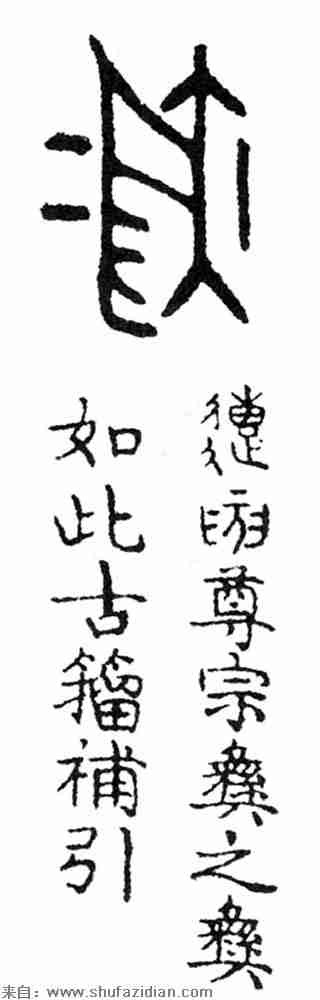 尊宗彝之彝
如此古籀補引
来自：www.shufazidian.com